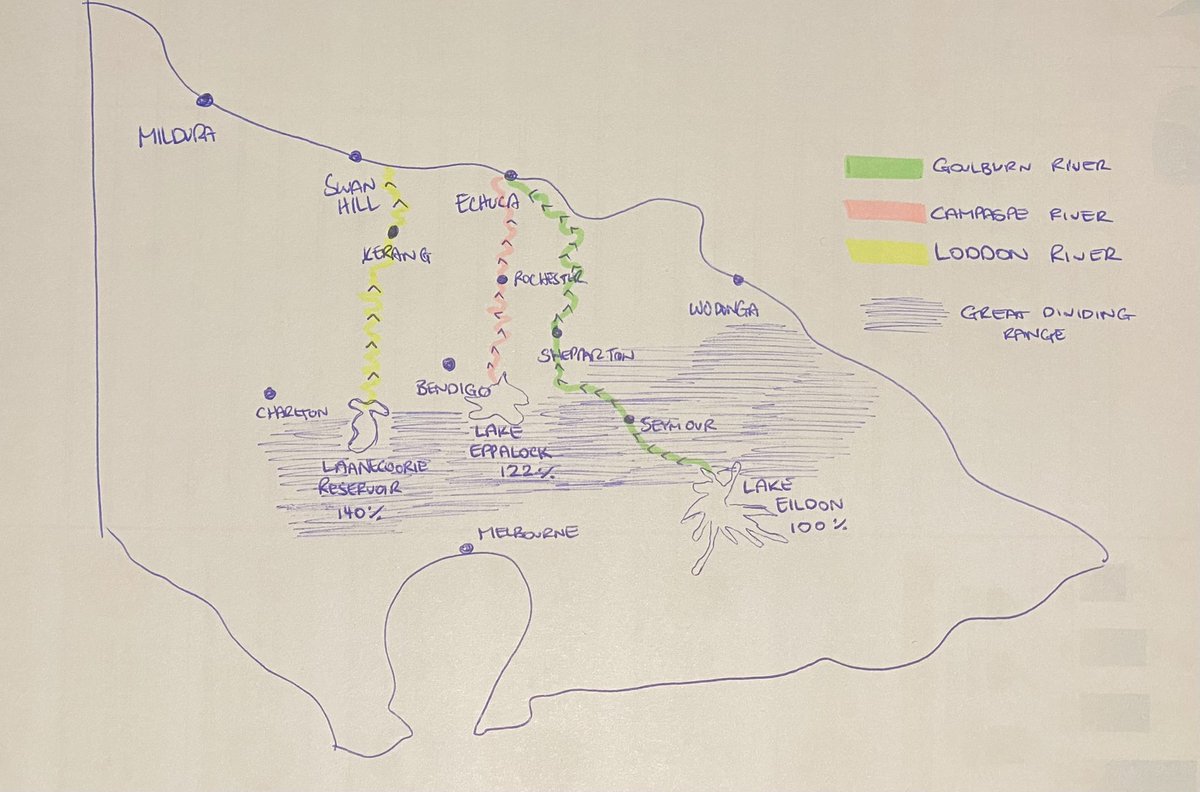 MILDURA
SWAN
HILL
KERANG
ECHUCA
ROCHESTER
SHEPPARTON
WODONGA
BENDIGO
CHARLTON
SEYMOUR
LAANECOORIE
RESERVOIR
140%
LAKE
EPPALOCK
122%
LAKE
EILDON
100%
MELBOURNE
GOULBURN RIVER
CAMPASPE RIVER
LODDON RIVER
GREAT DIVIDING
RANGE